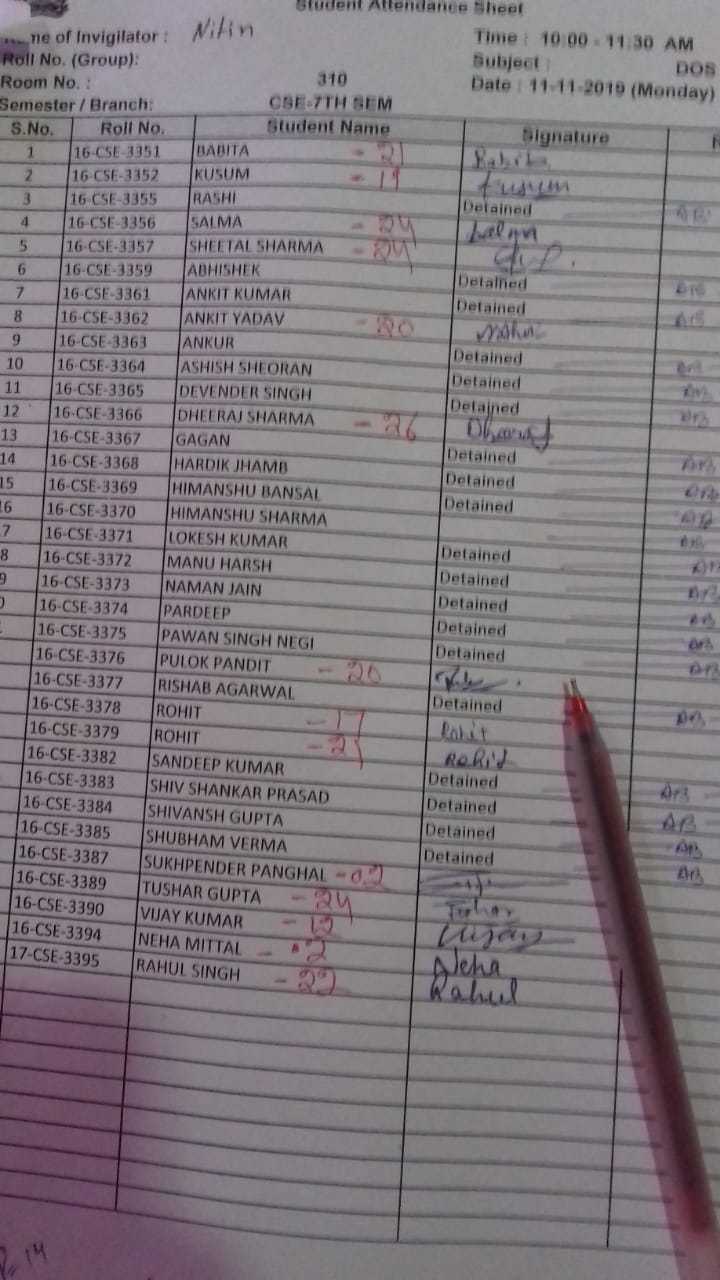 Student Attendance Sheet
me of Invigilator : Nitin Time : 10:00 - 11:30 AM
Roll No. (Group): Subject : DOS
Room No. : 310 Date : 11-11-2019 (Monday)
Semester / Branch: CSE-7TH SEM
S.No. Roll No. Student Name Signature
1 16-CSE-3351 BABITA - 21 Babita
2 16-CSE-3352 KUSUM - 19 Kusum
3 16-CSE-3355 RASHI Detained AB
4 16-CSE-3356 SALMA - 24 Salma
5 16-CSE-3357 SHEETAL SHARMA - 24
6 16-CSE-3359 ABHISHEK Detained AB
7 16-CSE-3361 ANKIT KUMAR Detained AB
8 16-CSE-3362 ANKIT YADAV - 20
9 16-CSE-3363 ANKUR Detained AB
10 16-CSE-3364 ASHISH SHEORAN Detained AB
11 16-CSE-3365 DEVENDER SINGH Detained AB
12 16-CSE-3366 DHEERAJ SHARMA - 26 Dheeraj
13 16-CSE-3367 GAGAN Detained AB
14 16-CSE-3368 HARDIK JHAMB Detained AB
15 16-CSE-3369 HIMANSHU BANSAL Detained AB
6 16-CSE-3370 HIMANSHU SHARMA AB
7 16-CSE-3371 LOKESH KUMAR Detained AB
8 16-CSE-3372 MANU HARSH Detained AB
9 16-CSE-3373 NAMAN JAIN Detained AB
16-CSE-3374 PARDEEP Detained AB
16-CSE-3375 PAWAN SINGH NEGI Detained AB
16-CSE-3376 PULOK PANDIT - 20
16-CSE-3377 RISHAB AGARWAL Detained AB
16-CSE-3378 ROHIT - 17 Rohit
16-CSE-3379 ROHIT - 21 Rohit
16-CSE-3382 SANDEEP KUMAR Detained AB
16-CSE-3383 SHIV SHANKAR PRASAD Detained AB
16-CSE-3384 SHIVANSH GUPTA Detained AB
16-CSE-3385 SHUBHAM VERMA Detained AB
16-CSE-3387 SUKHPENDER PANGHAL - 02
16-CSE-3389 TUSHAR GUPTA - 24 Tushar
16-CSE-3390 VIJAY KUMAR - 12 Vijay
16-CSE-3394 NEHA MITTAL - 2 Neha
17-CSE-3395 RAHUL SINGH - 22 Rahul
14